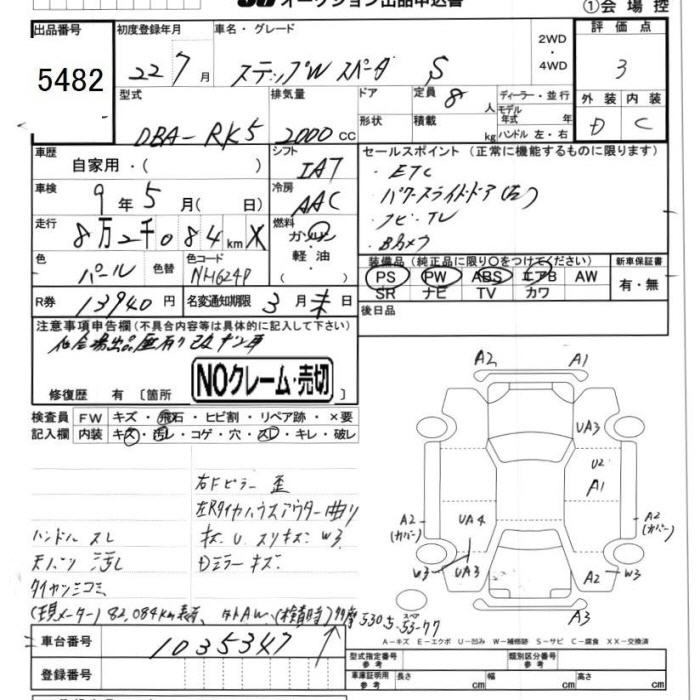 オークション出品申込書
①会場控
出品番号 初度登録年月 車名・グレード 2WD・4WD 評価点
5482 22 7月 ステップW スパーダ S 3
型式 排気量 ドア 定員 8人 ディーラー・並行 外装 内装
DBA-RK5 2000cc 形状 積載 kg モデル年式 年 ハンドル 左・右 D C
車歴 自家用・( ) シフト IAT セールスポイント(正常に機能するものに限ります)
車検 9年5月( 日) 冷房 AAC ・ETC
・パワースライドドア(左)
走行 8万2千084km 燃料 ガソリン・軽油・( ) ・ナビ・TV
・Bカメラ
色 パール 色替 色コード NH624P 装備品(純正品に限り○をつけてください) 新車保証書
PS PW ABS エアB AW 有・無
SR ナビ TV カワ
R券 13940円 名変通知期限 3月末日 後日品
注意事項申告欄(不具合内容等は具体的に記入して下さい)
修復歴 有 〔箇所
NOクレーム・売切
検査員記入欄 FW キズ・飛石・ヒビ割・リペア跡・×要
内装 キズ・汚れ・コゲ・穴・スレ・キレ・破レ
右Fピラー 歪
左Rタイヤハウスアウター曲り
ハンドル スレ キズ U スリキズ W3
天バリ 汚レ Dミラー キズ
(現メーター) 82,084km表示
車台番号 1035347
登録番号
A2 A1
UA3
U2
A1
A2(カバー) UA4 A2(カバー)
W3 UA3 A2 W3
A3
スペア
A－キズ E－エクボ U－凹み W－補修跡 S－サビ C－腐食 XX－交換済
型式指定番号 参考 類別区分番号 参考
車庫証明用 参考 長さ cm 幅 cm 高さ cm